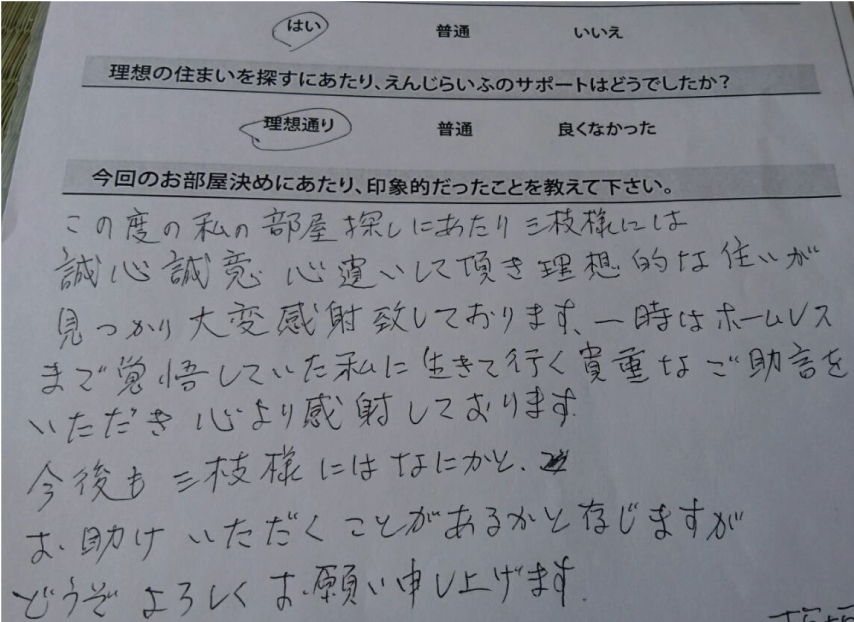 はい 普通 いいえ
理想の住まいを探すにあたり、えんじらいふのサポートはどうでしたか？
理想通り 普通 良くなかった
今回のお部屋決めにあたり、印象的だったことを教えて下さい。
この度の私の部屋探しにあたり三枝様には
誠心誠意心遣いして頂き理想的な住いが
見つかり大変感射致しております、一時はホームレス
まで覚悟していた私に生きて行く貴重なご助言を
いただき心より感射しております.
今後も三枝様にはなにかと、
お助けいただくことがあるかと存じますが
どうぞよろしくお願い申し上げます.